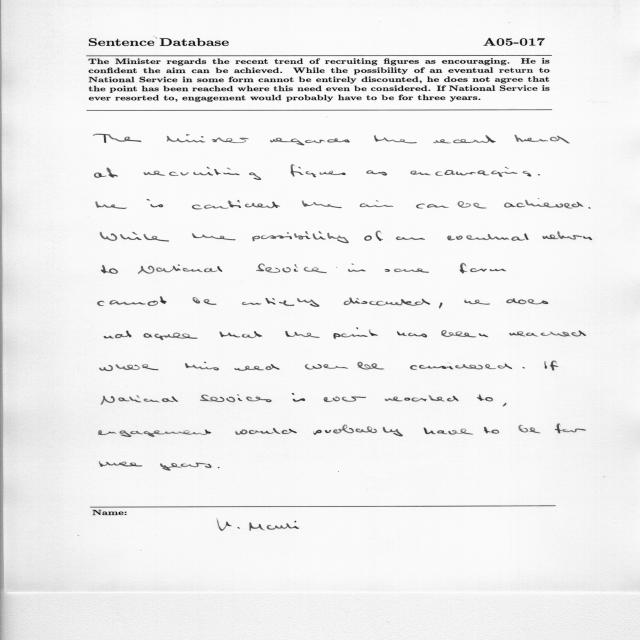 Sentence Database A05-017
The Minister regards the recent trend of recruiting figures as encouraging. He is
confident the aim can be achieved. While the possibility of an eventual return to
National Service in some form cannot be entirely discounted, he does not agree that
the point has been reached where this need even be considered. If National Service is
ever resorted to, engagement would probably have to be for three years.
The Minister regards the recent trend
of recruiting figures as encouraging.
He is confident the aim can be achieved.
While the possibility of an eventual return
to National Service in some form
cannot be entirely discounted, he does
not agree that the point has been reached
where this need even be considered. If
National Services is ever resorted to,
engagement would probably have to be for
three years.
Name: